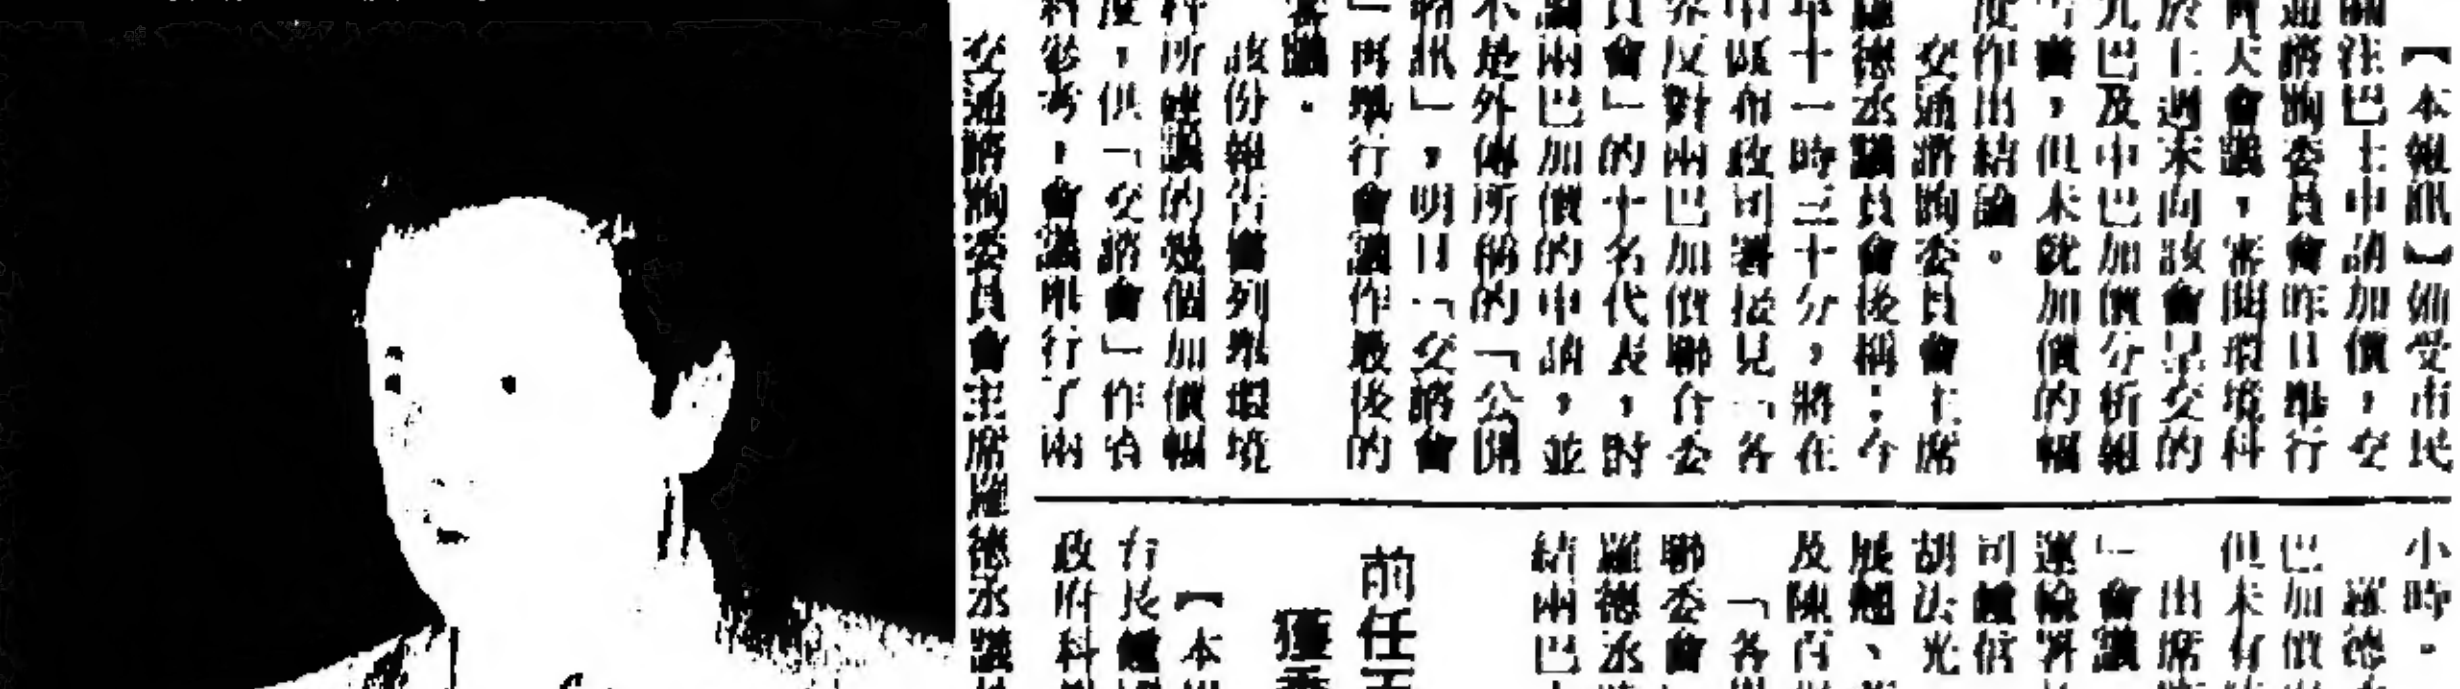 【本報訊】如受市民
關注巴士申請加價，交
通諮詢委員會昨日舉行
大會議，審閱環境科
於上週末向該會呈交的
九巴及中巴加價分析報
告書，但未就加價的幅
度作出結論。
交通諮詢委員會主席
羅德丞議員會後稱：今
早十一時三十分，將在
中區布政司署接見「各
界反對兩巴加價聯合委
員會」的十名代表，討
論兩巴加價的申請，並
不是外傳所稱的「公開
聆訊」，明日「交諮會
」再舉行會議作最後的
審議。
該份報告書列舉環境
科所建議的幾個加價幅
度，供「交諮會」作為
參考，會議舉行了兩
交通諮詢委員會主席羅德丞議
小時。
羅德
巴加價
但未有
出席
」會議
運輸署
司鍾信
胡法光
展翹、
及陳百
「各
聯委會
羅德丞
結兩巴
前任
獲
【本
行長
政府科